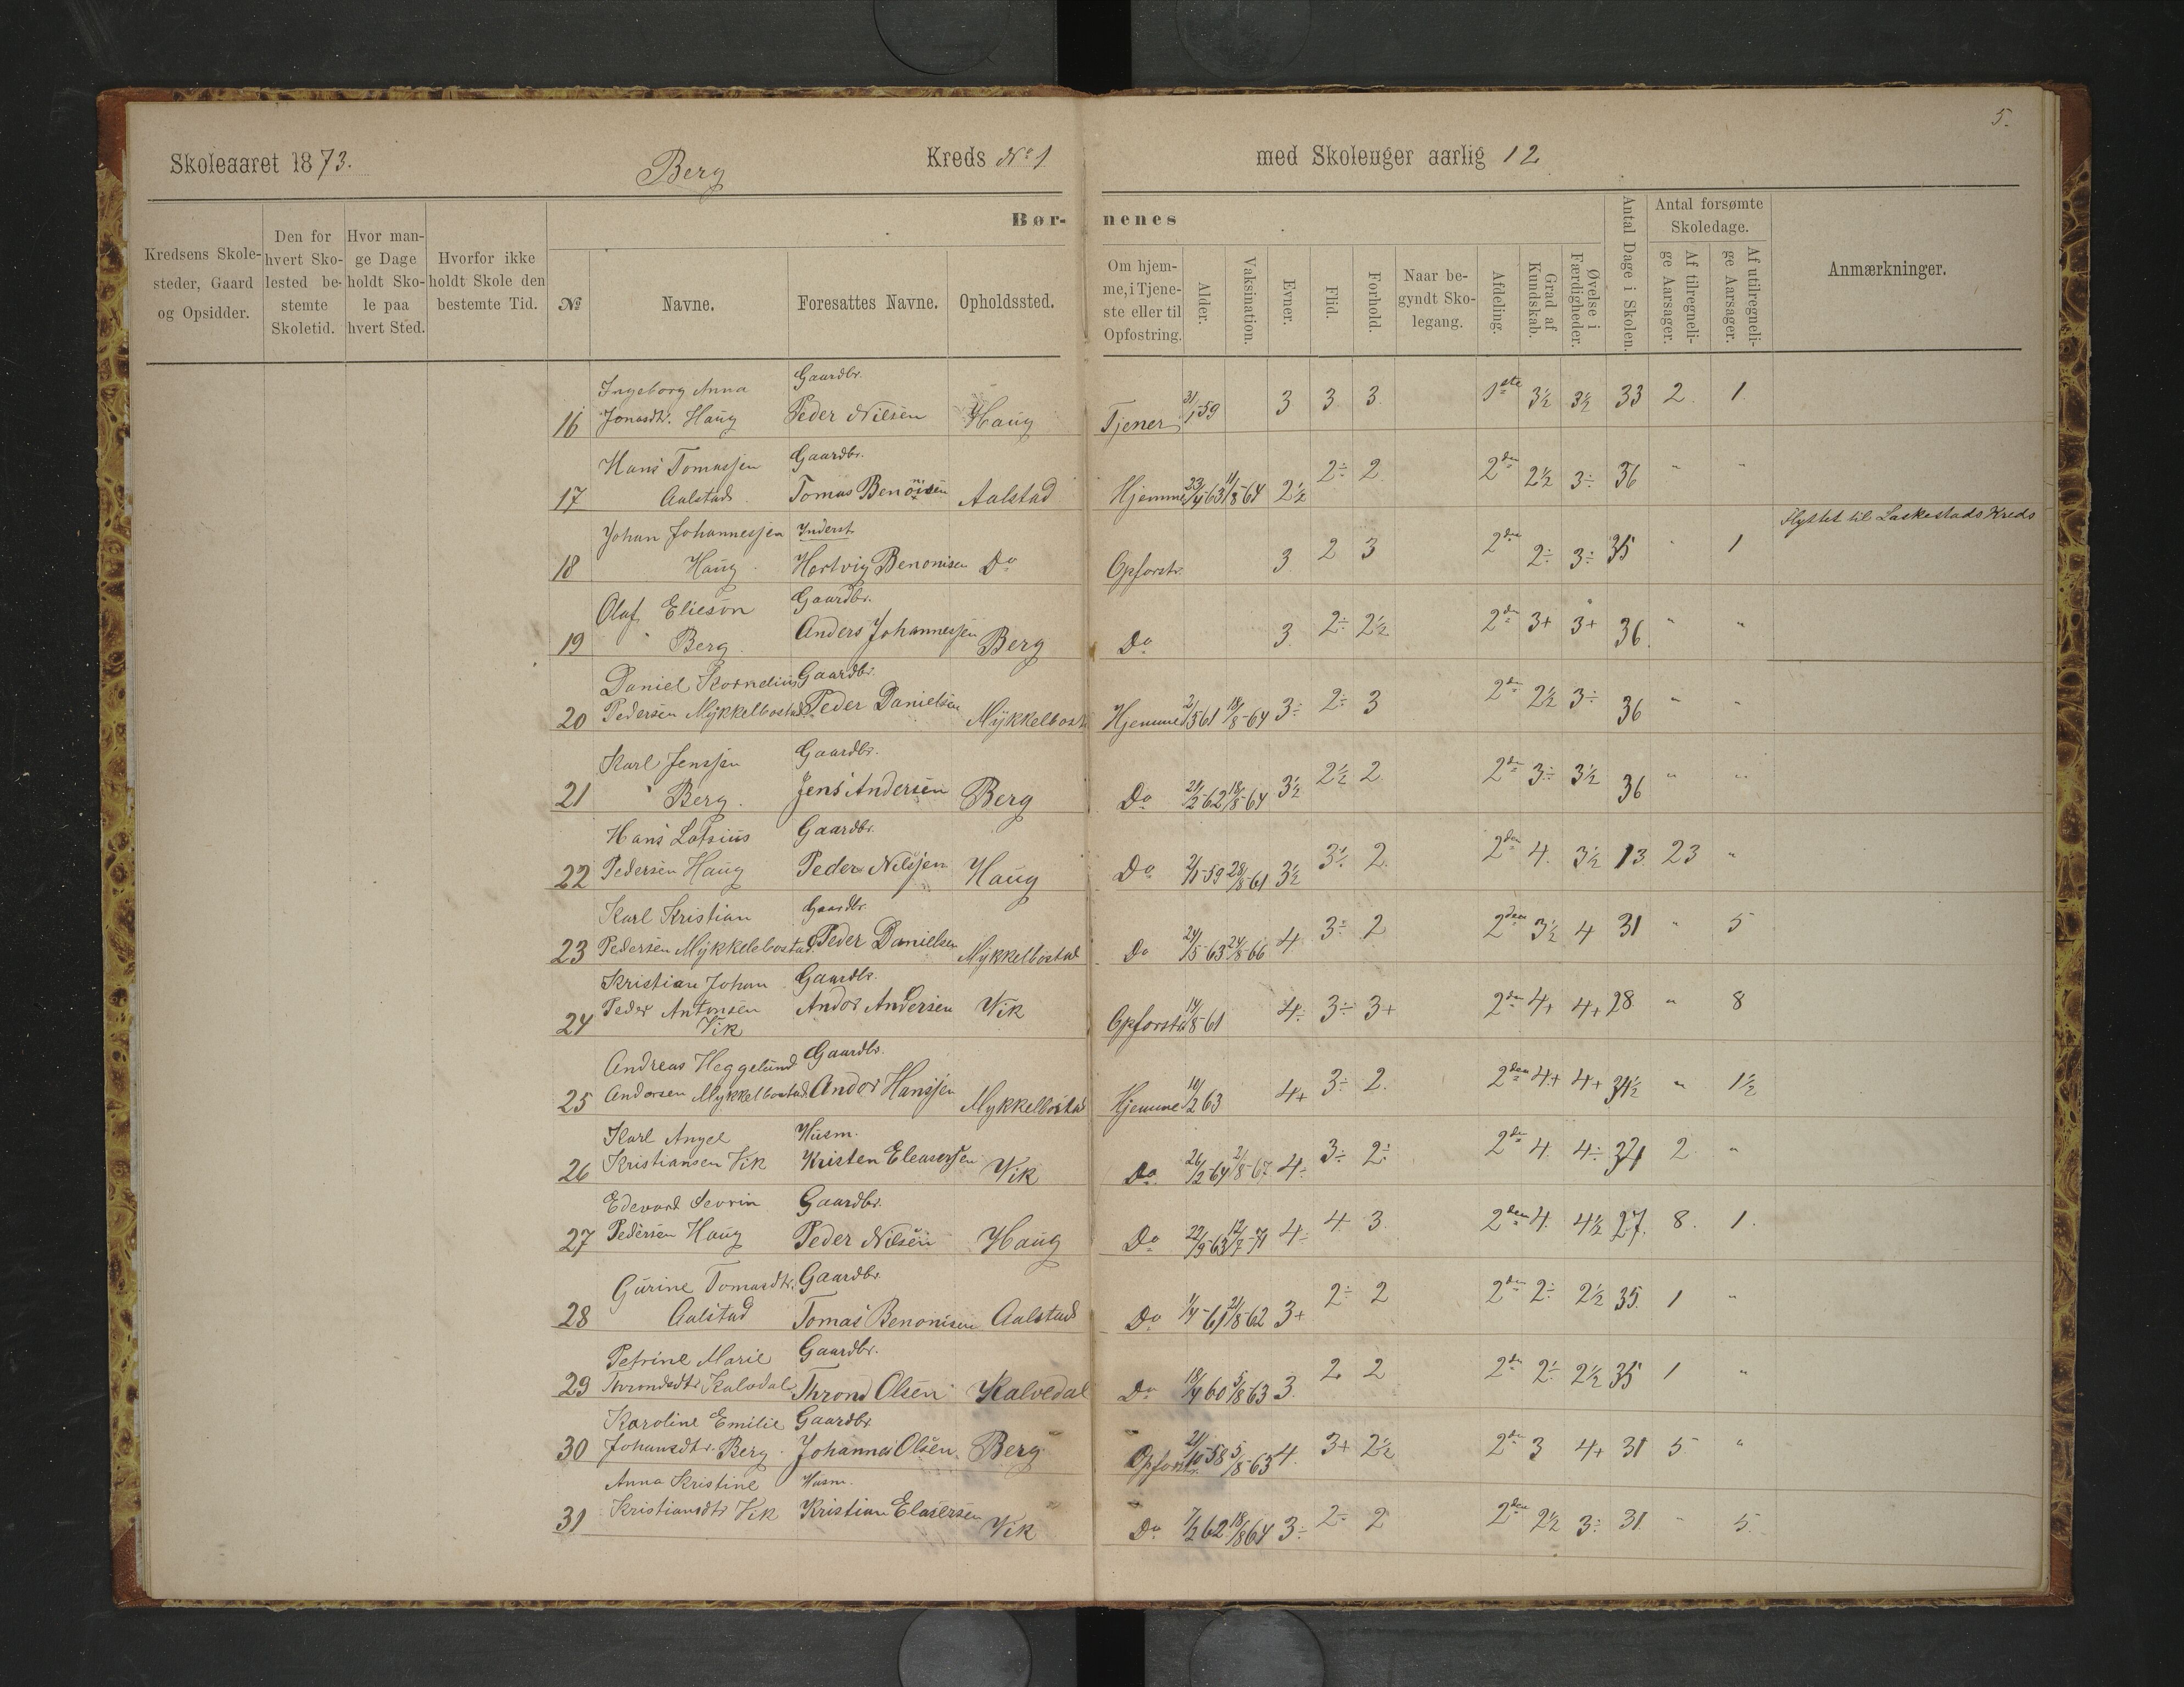 5.
Skoleaaret 1873. Berg Kreds No 1 med Skoleuger aarlig 12
Børnenes
Kredsens Skolesteder, Gaard og Opsidder. Den for hvert Skolested bestemte Skoletid. Hvor mange Dage holdt Skole paa hvert Sted. Hvorfor ikke holdt Skole den bestemte Tid. No Navne. Foresattes Navne. Opholdssted. Om hjemme, i Tjeneste eller til Opfostring. Alder. Vaksination. Evner. Flid. Forhold. Naar begyndt Skolegang. Afdeling. Grad af Kundskab. Øvelse i Færdigheder. Antal Dage i Skolen. Antal forsømte Skoledage. Af tilregnelige Aarsager. Af utilregnelige Aarsager. Anmærkninger.
Ingeborg Anna Gaardbr.
16 Jonasdtr. Haug Peder Nilsen Haug Tjener 31/1-59 3 3 3 1ste 3½ 3½ 33 2 1
Hans Tomassen Gaardbr.
17 Aalstad Tomas Benonisen Aalstad Hjemme 23/4-63 11/8-64 2½ 2÷ 2 2den 2½ 3÷ 36 " "
Johan Johannessen Inderst. Flyttet til Laskestads Kreds
18 Haug Hartvig Benonisen Do Opfostr. 3 2 3 2den 2÷ 3÷ 35 " 1
Olaf Elieson Gaardbr.
19 Berg Anders Johannessen Berg Do 3 2÷ 2½ 2den 3+ 3+ 36 " "
Daniel Kornelius Gaardbr.
20 Pedersen Mykkelbostad Peder Danielsen Mykkelbost. Hjemme 2/5 61 18/8-64 3÷ 2÷ 3 2den 2½ 3÷ 36 " "
Karl Jenssen Gaardbr.
21 Berg. Jens Andersen Berg Do 21/2-62 18/8-64 3½ 2½ 2 2den 3÷ 3½ 36 " "
Hans Gaardbr.
22 Pedersen Haug Peder Nilssen Haug Do 2/1-59 28/8-61 3½ 3½ 2 2den 4 3½ 13 23 "
Karl Kristian Gaardbr.
23 Pedersen Mykkelebostad Peder Danielsen Mykkelbostad Do 24/5-63 24/8-66 4 3÷ 2 2den 3½ 4 31 " 5
Kristian Johan Gaardbr.
24 Peder Antonsen Andor Andersen Vik Opforstr. 14/8-61 4÷ 3÷ 3+ 2den 4+ 4+ 28 " 8
Vik
Andreas Heggelund Gaardbr.
25 Andorsen Mykkelbostad. Andor Hanssen Mykkelbostad Hjemme 10/2 63 4+ 3÷ 2 2den 4+ 4+ 34½ " 1½
Karl Angel Husm.
26 Kristiansen Vik Kristen Eleasersen Vik Do 26/2-64 2/8-67 4÷ 3÷ 2÷ 2den 4 4÷ 2 "
Edevard Sevrin Gaardbr.
27 Pedersen Haug Peder Nilsen Haug Do 22/9-63 12/7-71 4÷ 4 3 2den 4 4½ 27 8 1
Gurine Tomasdtr. Gaardbr.
28 Aalstad Tomas Benonisen Aalstad Do 1/4-61 21/8-62 3+ 2÷ 2 2den 2÷ 2½ 35 1 "
Petrine Marie Gaardbr.
29 Throndsdtr Kalvdal Thrond Olsen Kalvedal Do 18/4 60 5/8 63 3 2 2 2den 2÷ 2½ 35 1 "
Karoline Emilie Gaardbr.
30 Johansdtr. Berg Johannes Olsen Berg Opfostr. 21/10-58 5/8-63 4 3+ 2½ 2den 3 4+ 31 5 "
Anna Kristine Husm.
31 Kristiansdtr Vik Kristian Elasersen Vik Do 7/2 62 18/8 64 3÷ 2÷ 2 2den 2½ 3÷ 31 " 5